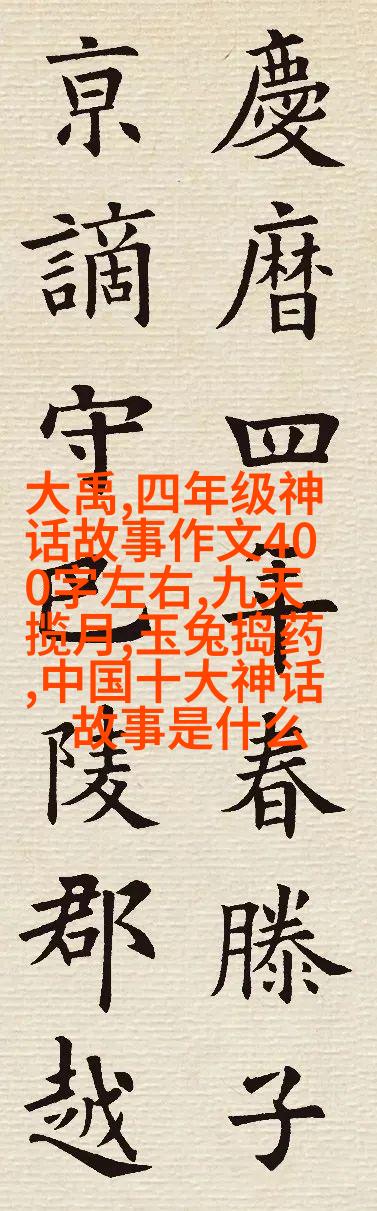 慶暦四年春滕子
亰謫守巴陵郡越
大禹,四年级神
话故事作文40
0字左右,九天
揽月,玉兔捣药
,中国十大神话
故事是什么